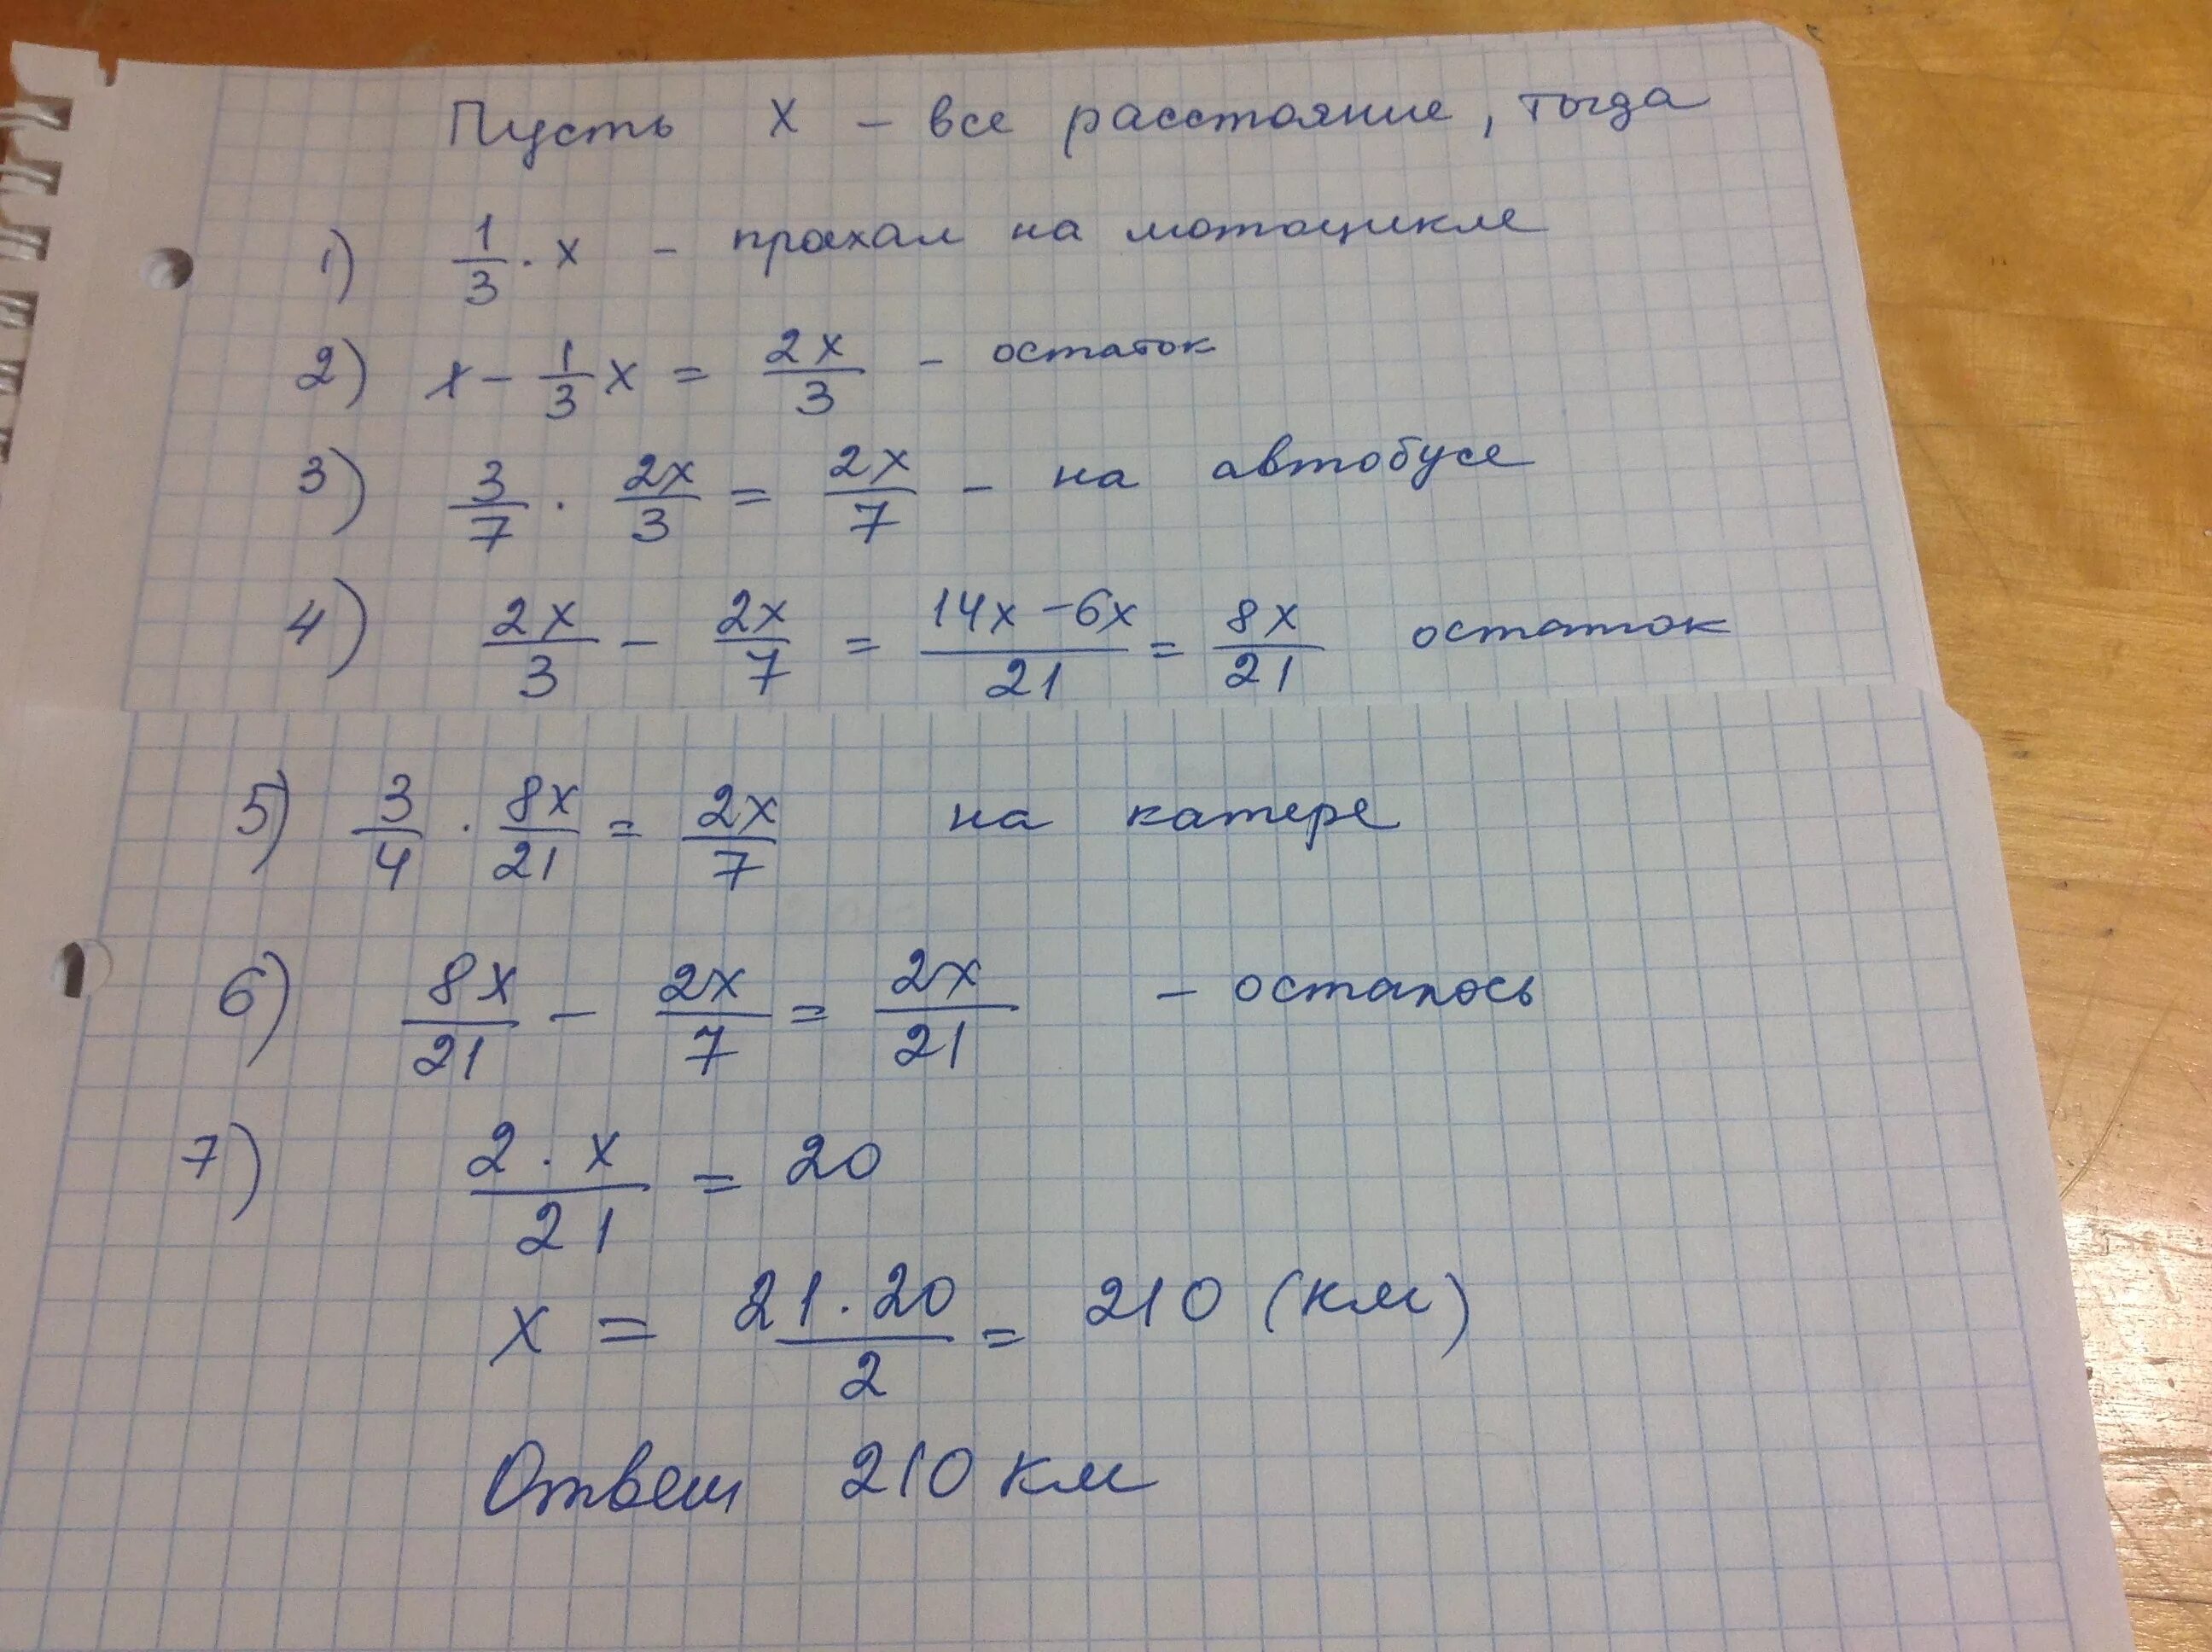 Пусть x – все расстояние, тогда
1) 1/3 · x – проехал на мотоцикле
2) x – 1/3 x = 2x/3 – остаток
3) 3/7 · 2x/3 = 2x/7 – на автобусе
4) 2x/3 – 2x/7 = 14x – 6x/21 = 8x/21 остаток
5) 3/4 · 8x/21 = 2x/7 на катере
6) 8x/21 – 2x/7 = 2x/21 – осталось
7) 2 · x/21 = 20
x = 21 · 20/2 = 210 (км)
Ответ 210 км